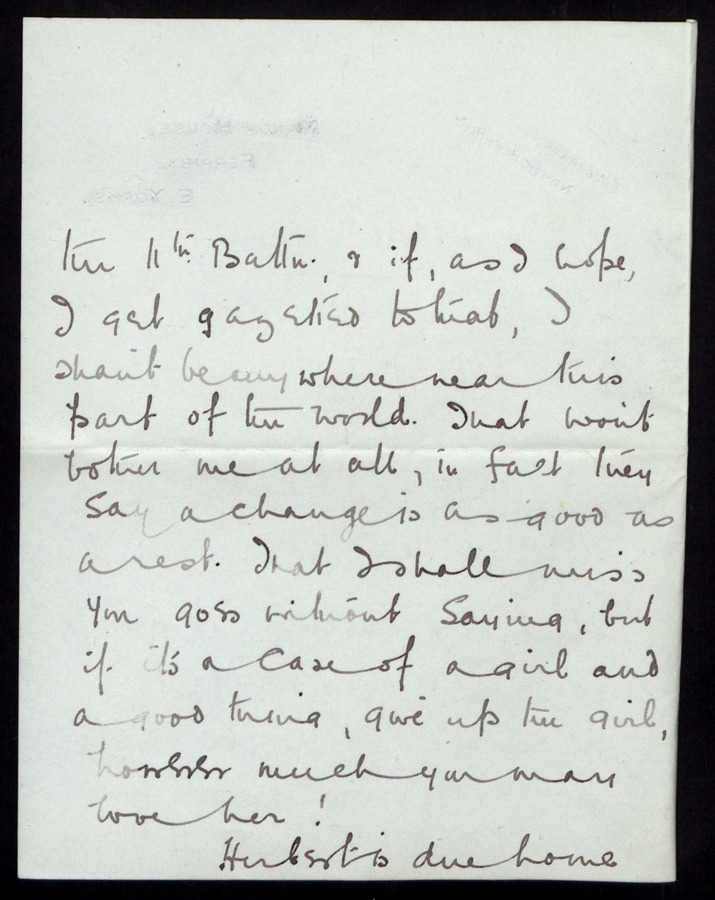 the 11th Battn., & if, as I hope,
I get gazetted to that, I
shan't be anywhere near this
part of the world. That won't
bother me at all, in fact they
say a change is as good as
a rest. That I shall miss
you goes without saying, but
if it's a case of a girl and
a good thing, give up the girl,
however much you may
love her!
Herbert is due home